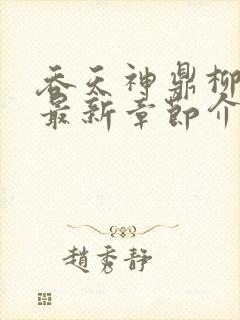 吞天神鼎柳
最新章节介
趙秀靜